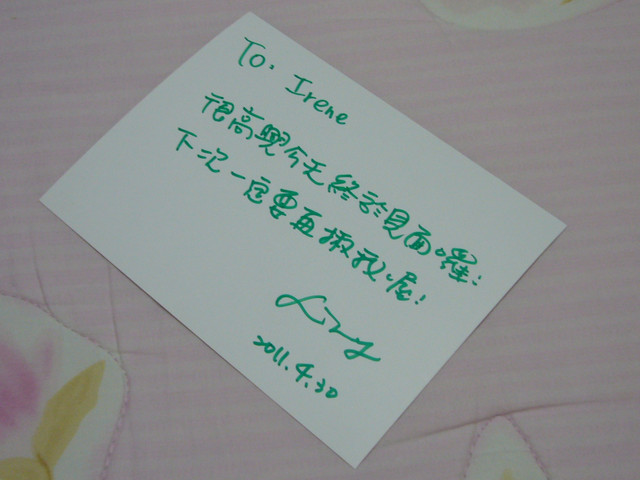 To. Irene
很高興今天終於見面囉!
下次一定要再揪我喔!
2011.4.30